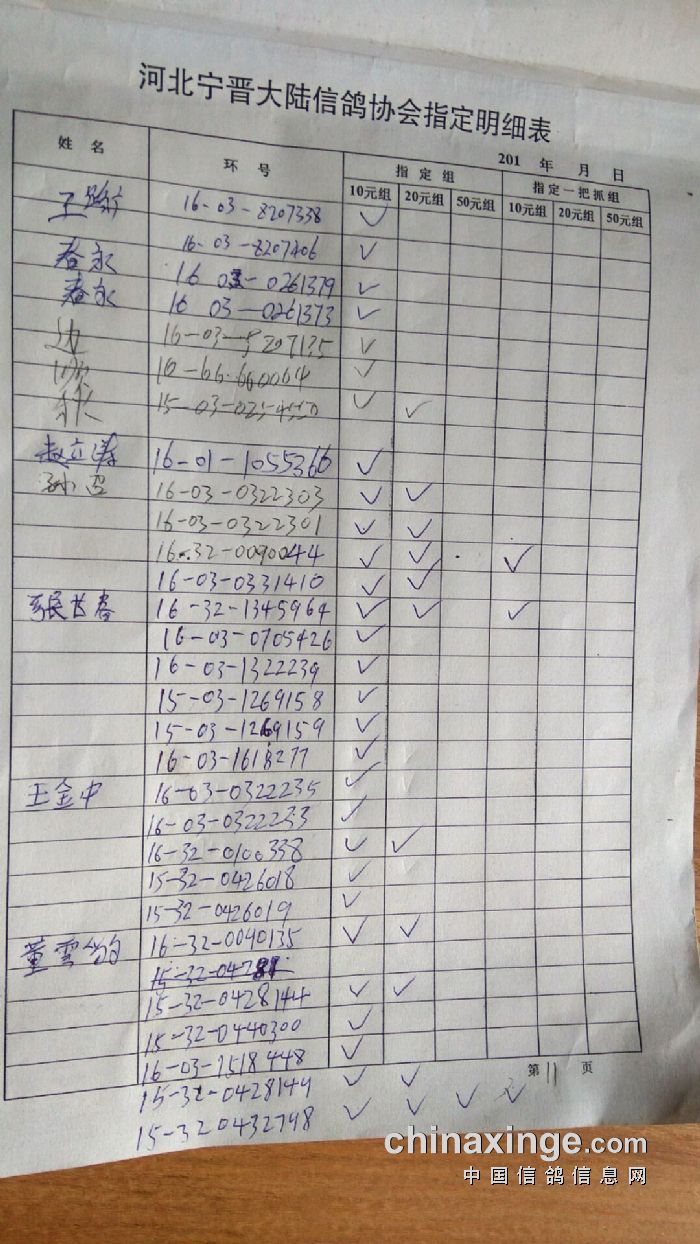 河北宁晋大陆信鸽协会指定明细表
201 年 月 日
姓 名 环 号 指 定 组 指定一把抓组
10元组 20元组 50元组 10元组 20元组 50元组
王 16-03-8207338 ✓
16-03-8207406 ✓
春永 16 03-0261379 ✓
春永 16 03-0261373 ✓
边 16-03-8207135 ✓
✓
秋 ✓ ✓
赵立涛 16-01-1055366 ✓
孙 16-03-0322303 ✓ ✓
16-03-0322301 ✓ ✓
16-32-0090044 ✓ ✓ ✓
16-03-0331410 ✓ ✓
张长春 16-32-1345964 ✓ ✓ ✓
16-03-0705426 ✓
16-03-1322239 ✓
15-03-1269158 ✓
15-03-1269159 ✓
16-03-1618277 ✓
王金中 16-03-0322235 ✓
16-03-0322233 ✓
16-32-0100338 ✓ ✓
15-32-0426018 ✓
15-32-0426019 ✓
董雪 16-32-0090135 ✓ ✓
15-32-0428144 ✓ ✓
15-32-0440300 ✓
16-03-1518448 ✓
第 11 页
15-32-0428149 ✓ ✓
15-320432748 ✓ ✓ ✓ ✓
chinaxinge.com
中国信鸽信息网